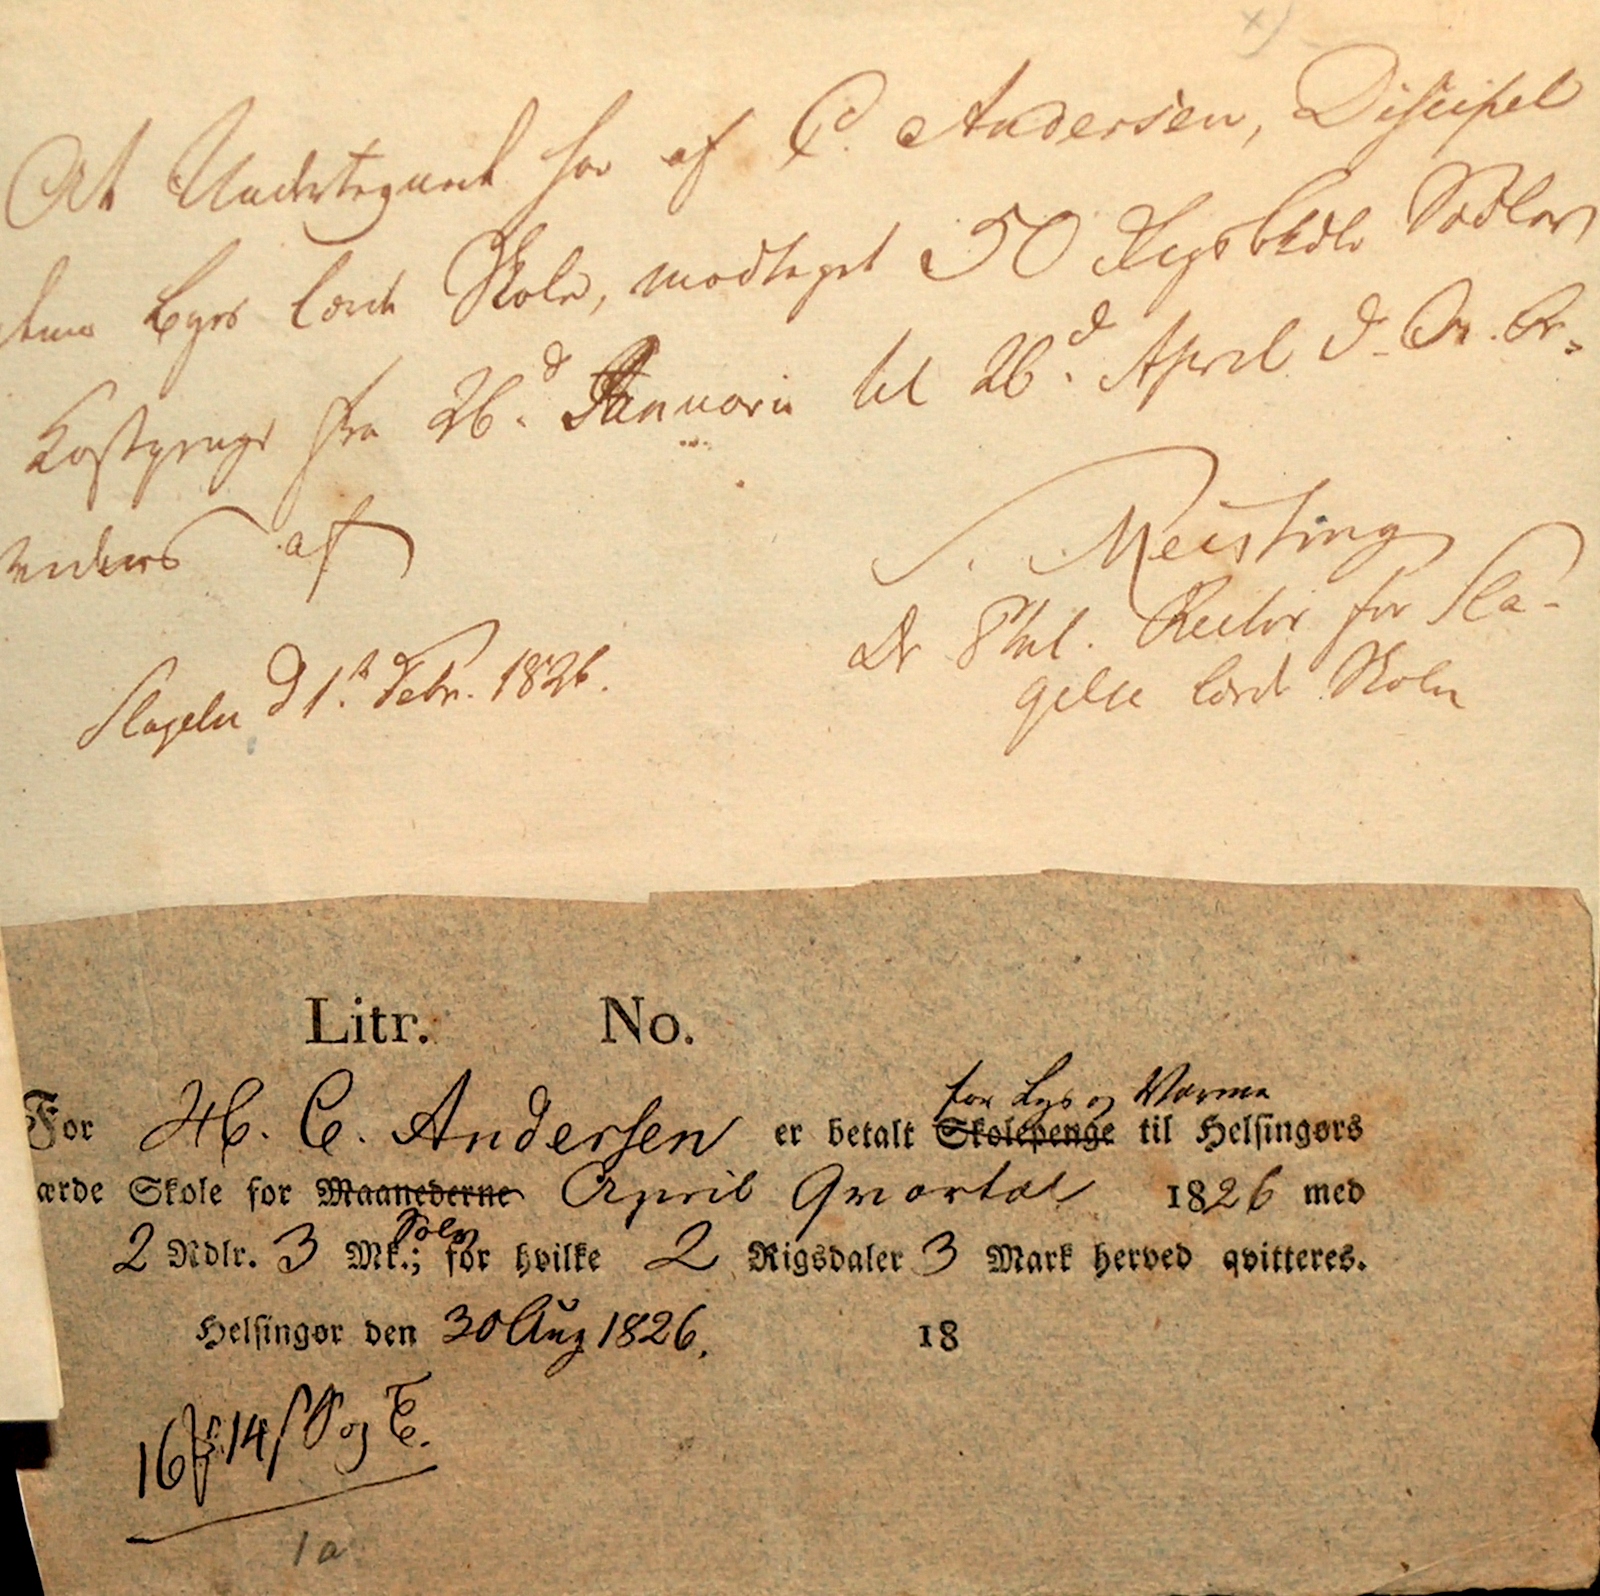 At Undertegnede har af C. Andersen, Discipel
denne Byes lærde Skole, modtaget 50 Rigsbdlr Sedler
Kostpenge fra 26.d Januarii til 26d. April d. A. Be-
vidnes af
S. Meisling
Dr Phil. Rector for Sla-
gelse lærde Skole
Slagelse d 1.ste Febr. 1826.
Litr. No.
for Lys og Varme
For H. C. Andersen er betalt Skolepenge til Helsingørs
ærde Skole for Maanederne April Qvartal 1826 med
Sølv
2 Rdlr. 3 Mk.; for hvilke 2 Rigsdaler 3 Mark herved qvitteres.
Helsingør den 30 Aug 1826. 18
16 14 S og T.
1a